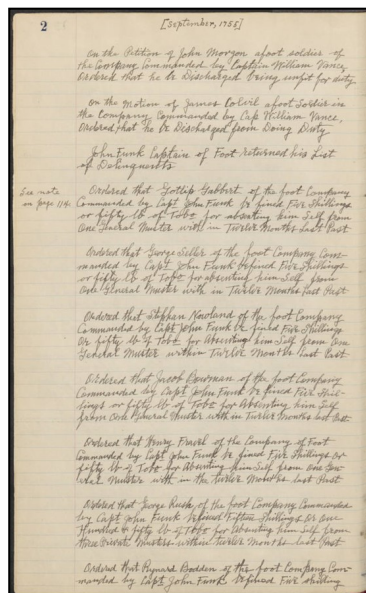 2
[September, 1755]
On the Petition of John Morgan afoot soldier of
the Company Commanded by Captain William Vance,
Ordered that he be Discharged being unfit for duty
On the Motion of James Colvil afoot Soldier in
the Company Commanded by Cap William Vance,
Ordered, that he be Discharged from Doing Duty
John Funk Captain of Foot returned his List
of Delinquents
See note
on page 114.
Ordered that Gotlip Gabbert of the foot Company
Commanded by Capt John Funk be fined Five Shillings
or fifty lb of Tobo for absenting him Self from
One General Muster with in Twelve Months Last Past
Ordered that George Seller of the foot Company Com-
manded by Capt John Funk be fined Five Shillings
or fifty lb of Tobo for Absenting him Self from
One General Muster with in Twelve Months Last Past
Ordered that Stephan Rowland of the foot Company
Commanded by Capt John Funk be fined Five Shillings
or fifty lb of Tobo for Absenting him Self from One
General Muster within Twelve Months last Past
Ordered that Jacob Bowman of the foot Company
Commanded by Capt John Funk be fined Five Shil-
lings or fifty lb of Tobo for Absenting him Self
from One General Muster with in Twelve Months last Past
Ordered that Henry Fravel of the Company of Foot
Commanded by Capt John Funk be fined Five Shillings or
fifty lb of Tobo for Absenting him Self from One Gen-
eral Muster with in the Twelve Months last Past
Ordered that George Rush of the foot Company Commanded
by Capt John Funk be fined Fifteen Shillings or One
Hundred & fifty lb of Tobo for Absenting him Self from
three Private Musters within twelve Months last Past
Ordered that Reynard Bodden of the foot Company Com-
manded by Capt John Funk be fined Five Shilling